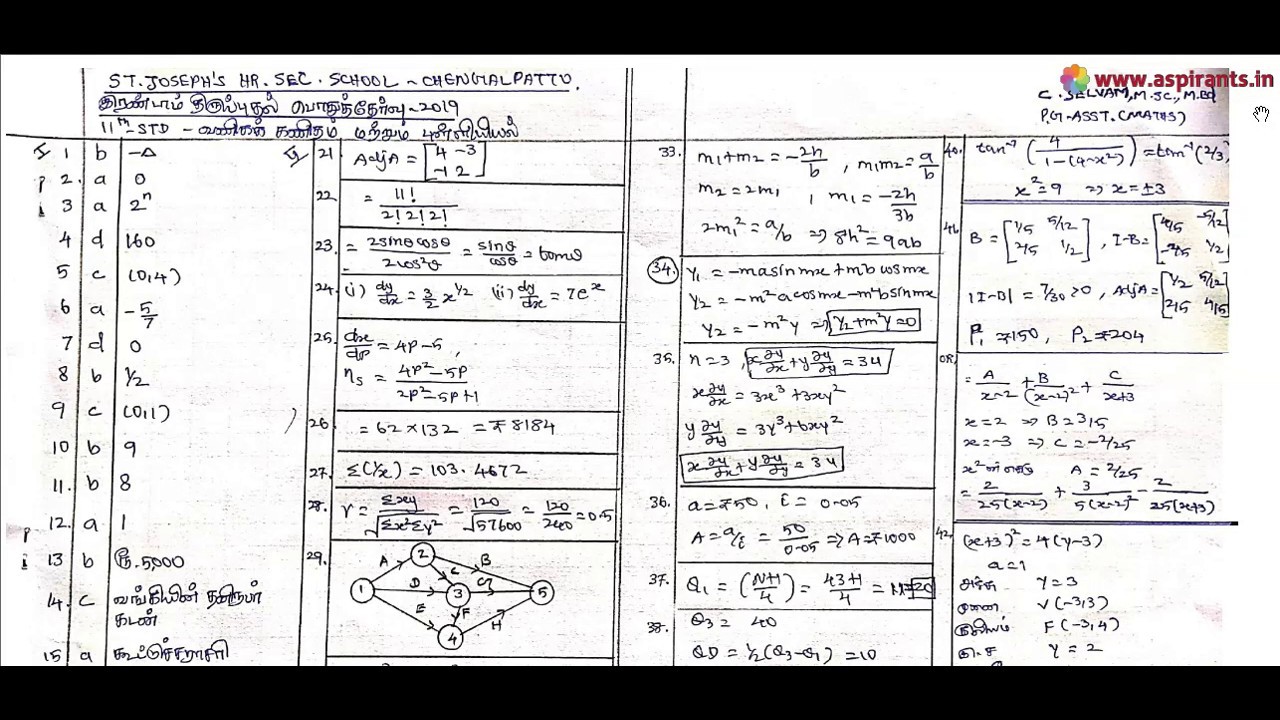 www.aspirants.in
ST.JOSEPH'S HR.SEC.SCHOOL - CHENGALPATTU.
இரண்டாம் திருப்புதல் பொதுத்தேர்வு - 2019
11th-STD - வணிகக் கணிதம் மற்றும் புள்ளியியல்
C. SELVAM, M.SC., M.Ed
PG-ASST. (MATHS)
I 1 b -Δ
2. a 0
3 a 2^n
4 d 160
5 c (0,4)
6 a -5/7
7 d 0
8 b 1/2
9 c (0,1)
10 b 9
11. b 8
12. a 1
13 b ரூ.5000
14. c வங்கியின் தனிநபர்
கடன்
15 a கூட்டுச்சராசரி
II 21. AdjA = [4 -3
-1 2]
22 = 11!/2!2!2!
23. = 2sinθcosθ/2cos²θ = sinθ/cosθ = tanθ
24. (i) dy/dx = 3/2 x^1/2 (ii) dy/dx = 7e^x
25. dx/dp = 4P-5,
ηs = 4P²-5P/2P²-5P+1
26. = 62×132 = ₹8184
27. Σ(1/x) = 103.4672
28. r = Σxy/√Σx²Σy² = 120/√57600 = 120/240 = 0.5
29. 1 2 3 4 5 A B C D E F G H
33. m1+m2 = -2h/b, m1m2 = a/b
m2 = 2m1, m1 = -2h/3b
2m1² = a/b ⇒ 8h² = 9ab
34. y1 = -masinmx+mbcosmx
y2 = -m²acosmx-m²bsinmx
y2 = -m²y ⇒ y2+m²y=0
35. n=3, x∂u/∂x+y∂u/∂y = 3u
x∂u/∂x = 3x³+3xy²
y∂u/∂y = 3y³+6xy²
x∂u/∂x+y∂u/∂y = 3u
36. a=₹50, i = 0.05
A = a/i = 50/0.05 ⇒ A=₹1000
37. Q1 = (N+1/4) = 43+1/4 =
38. Q3 = 40
QD = 1/2(Q3-Q1) = 10
40. tan⁻¹(4/1-(4-x²)) = tan⁻¹(2/3)
x²=9 ⇒ x=±3
41. B = [1/5 5/12
2/5 1/2], I-B = [4/5 -5/12
-2/5 1/2]
|I-B| = 7/30 >0, AdjA = [1/2 5/12
2/5 4/5]
P1 = ₹150, P2 = ₹204
= A/x-2 + B/(x-2)² + C/x+3
x=2 ⇒ B=3/5
x=-3 ⇒ C=-2/25
A = 2/25
= 2/25(x-2) + 3/5(x-2)² - 2/25(x+3)
42. (x+3)² = 4(y-3)
a=1
அச்சு Y=3
முனை V(-3,3)
குவியம் F(-3,4)
இ.வ Y=2